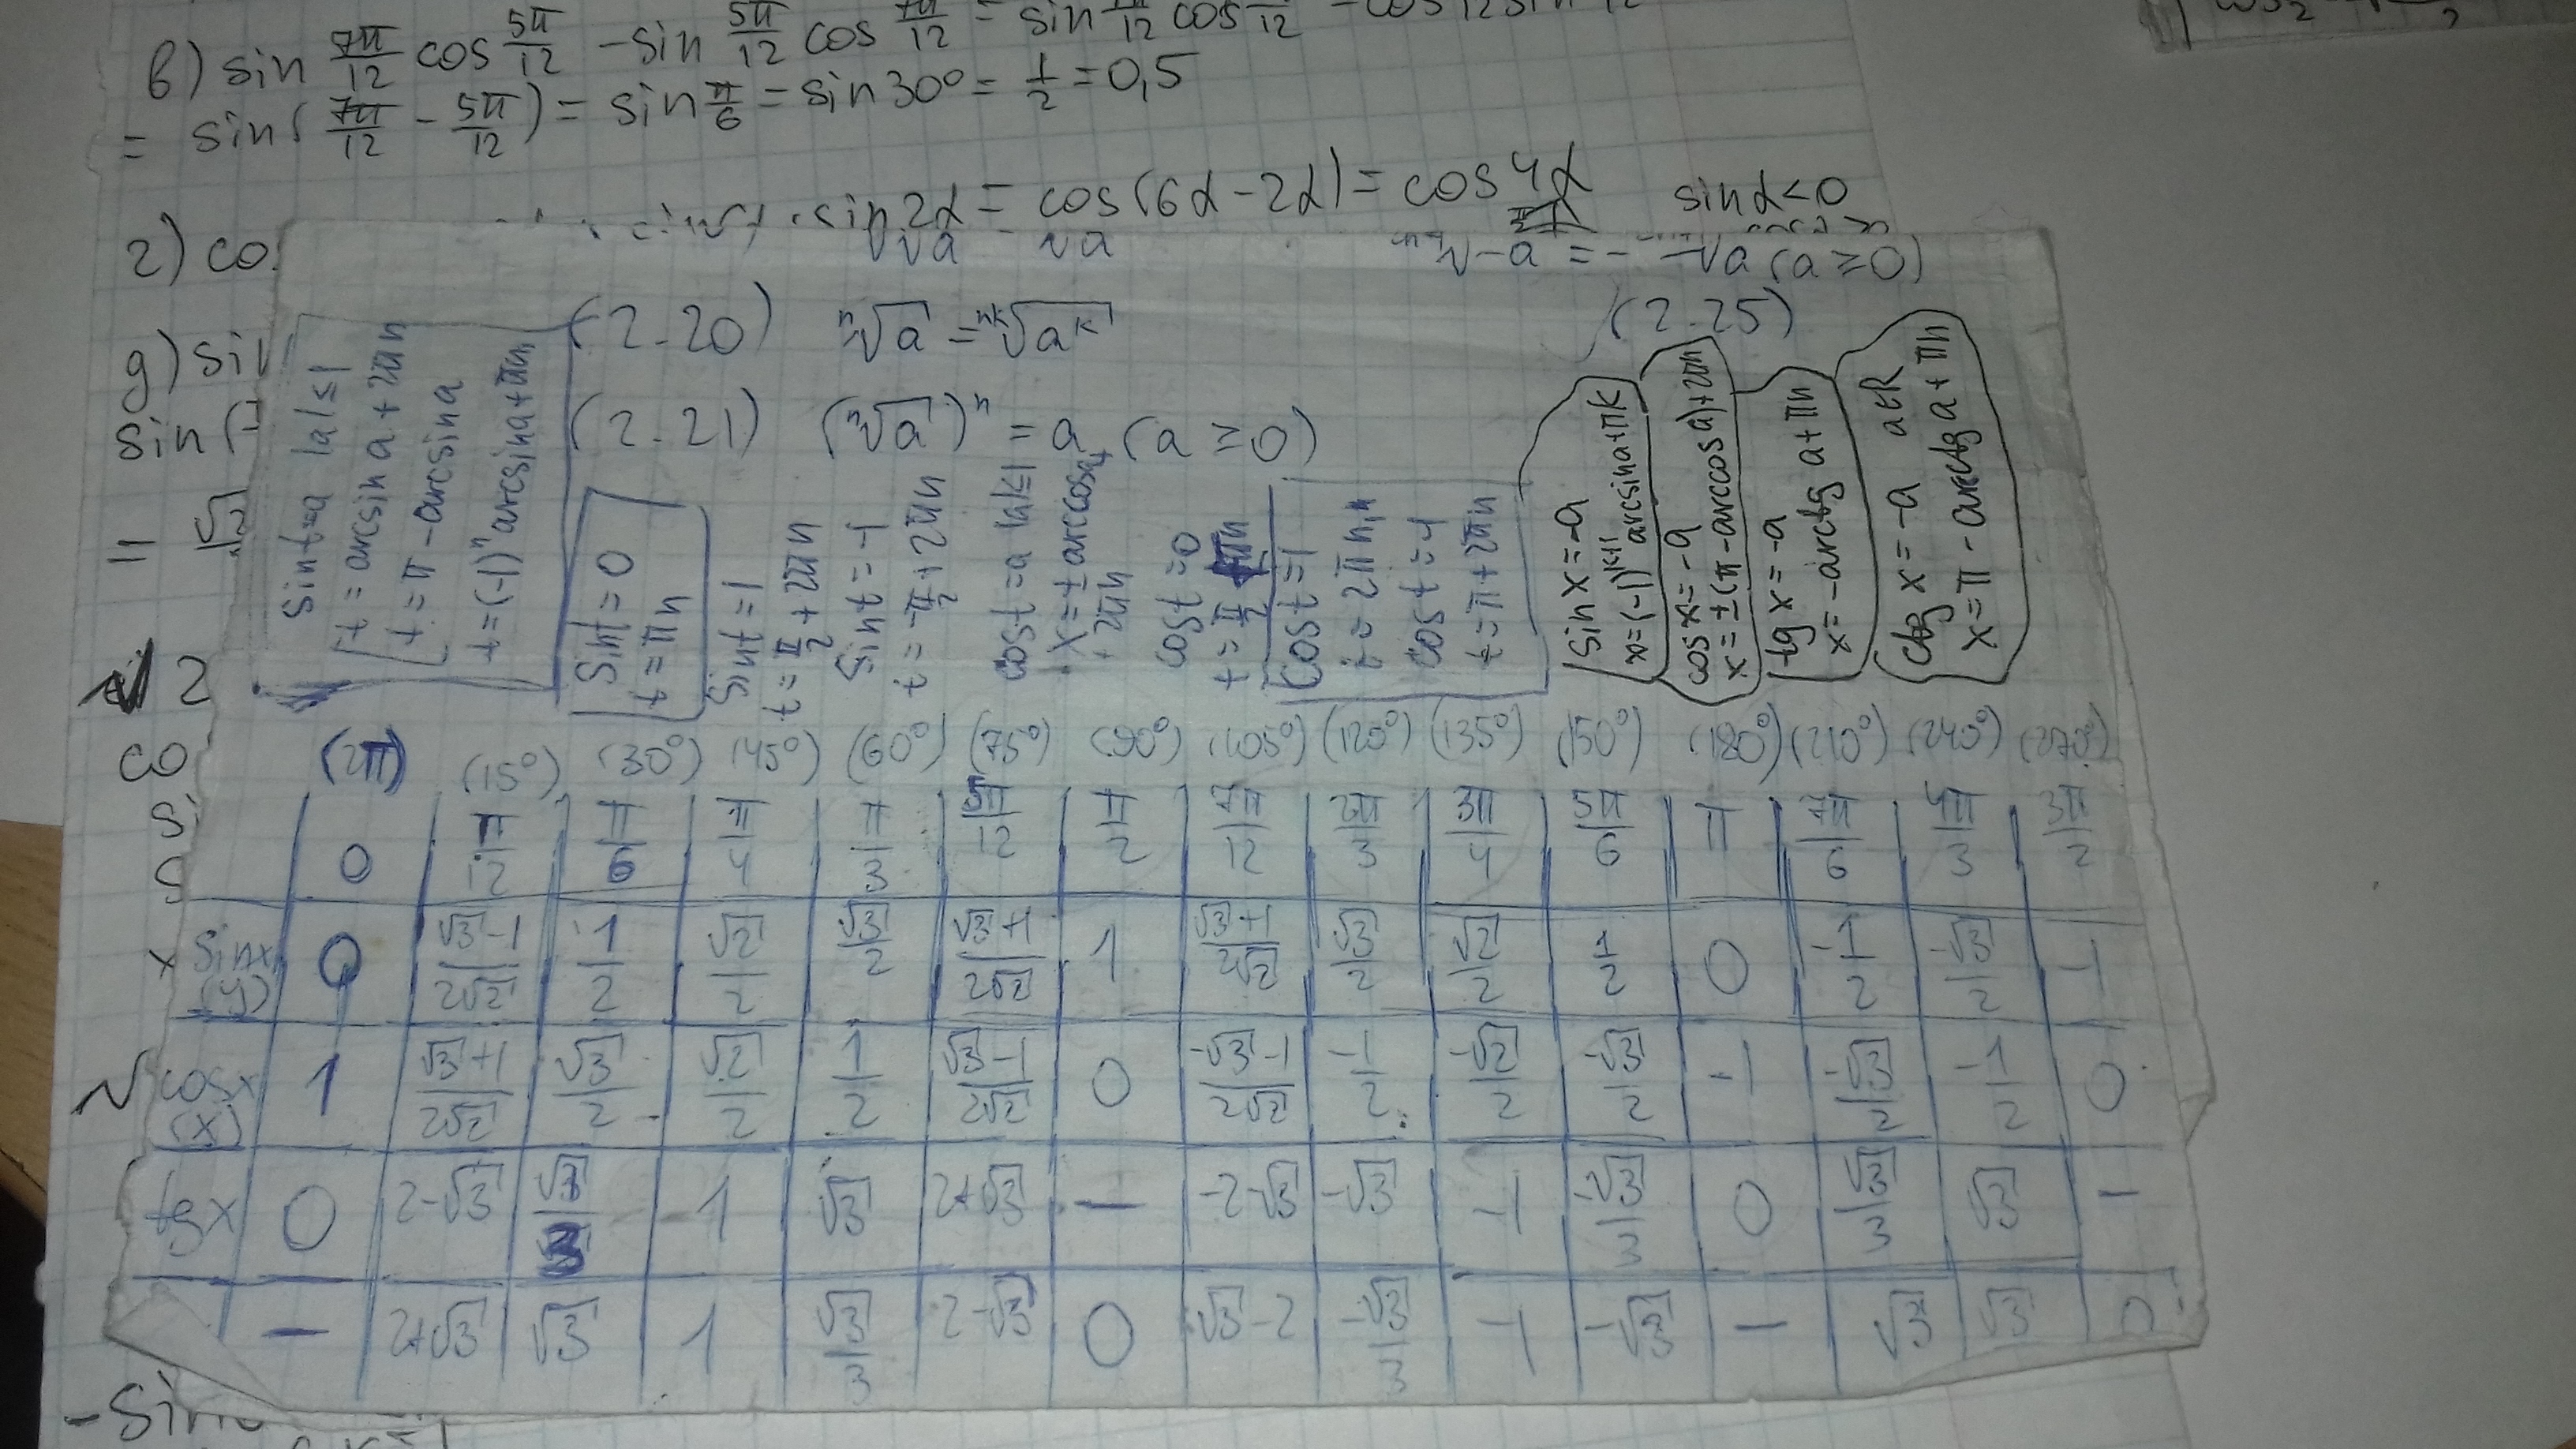 в) sin 7π/12 cos 5π/12 - sin 5π/12 cos 7π/12 = sin 7π/12 cos 5π/12 - cos
= sin( 7π/12 - 5π/12 ) = sin π/6 = sin30° = 1/2 = 0,5
2) co
sin2α = cos(6α-2α) = cos4α
sinα<0
g) sin
sin(
(2-20) ⁿ√a = ⁿᵏ√aᵏ
(2-21) (ⁿ√a)ⁿ = a (a ≥ 0)
-√a (a ≥ 0)
(2-25)
sint=a |a|≤1
t = arcsina + 2πn
t = π - arcsina
t = (-1)ⁿ arcsina + πn,
sint = 0
t = πn
sint = 1
t = π/2 + 2πn
sint = -1
t = -π/2 + 2πn
cost = a |a|≤1
x = ± arccosa +
+ 2πn
cost = 0
t = π/2 + πn
cost = 1
t = 2πn,n
cost = -1
t = π + 2πn
sin x = -a
x = (-1)ᵏ⁺¹ arcsina + πk
cos x = -a
x = ±(π - arccosa) + 2πn
tg x = -a
x = -arctg a + πn
ctg x = -a a∈R
x = π - arcctg a + πn
2
co
si
s
(2π) (15°) (30°) (45°) (60°) (75°) (90°) (105°) (120°) (135°) (150°) (180°) (210°) (240°) (270°)
0 π/12 π/6 π/4 π/3 5π/12 π/2 7π/12 2π/3 3π/4 5π/6 π 7π/6 4π/3 3π/2
x sinx (y) 0 √3-1/2√2 1/2 √2/2 √3/2 √3+1/2√2 1 √3+1/2√2 √3/2 √2/2 1/2 0 -1/2 -√3/2 -1
cosx (x) 1 √3+1/2√2 √3/2 √2/2 1/2 √3-1/2√2 0 -√3-1/2√2 -1/2 -√2/2 -√3/2 -1 -√3/2 -1/2 0
tgx 0 2-√3 √3/3 1 √3 2+√3 — -2-√3 -√3 -1 -√3/3 0 √3/3 √3 —
— 2+√3 √3 1 √3/3 2-√3 0 √3-2 -√3/3 -1 -√3 — √3 √3 0
-sin